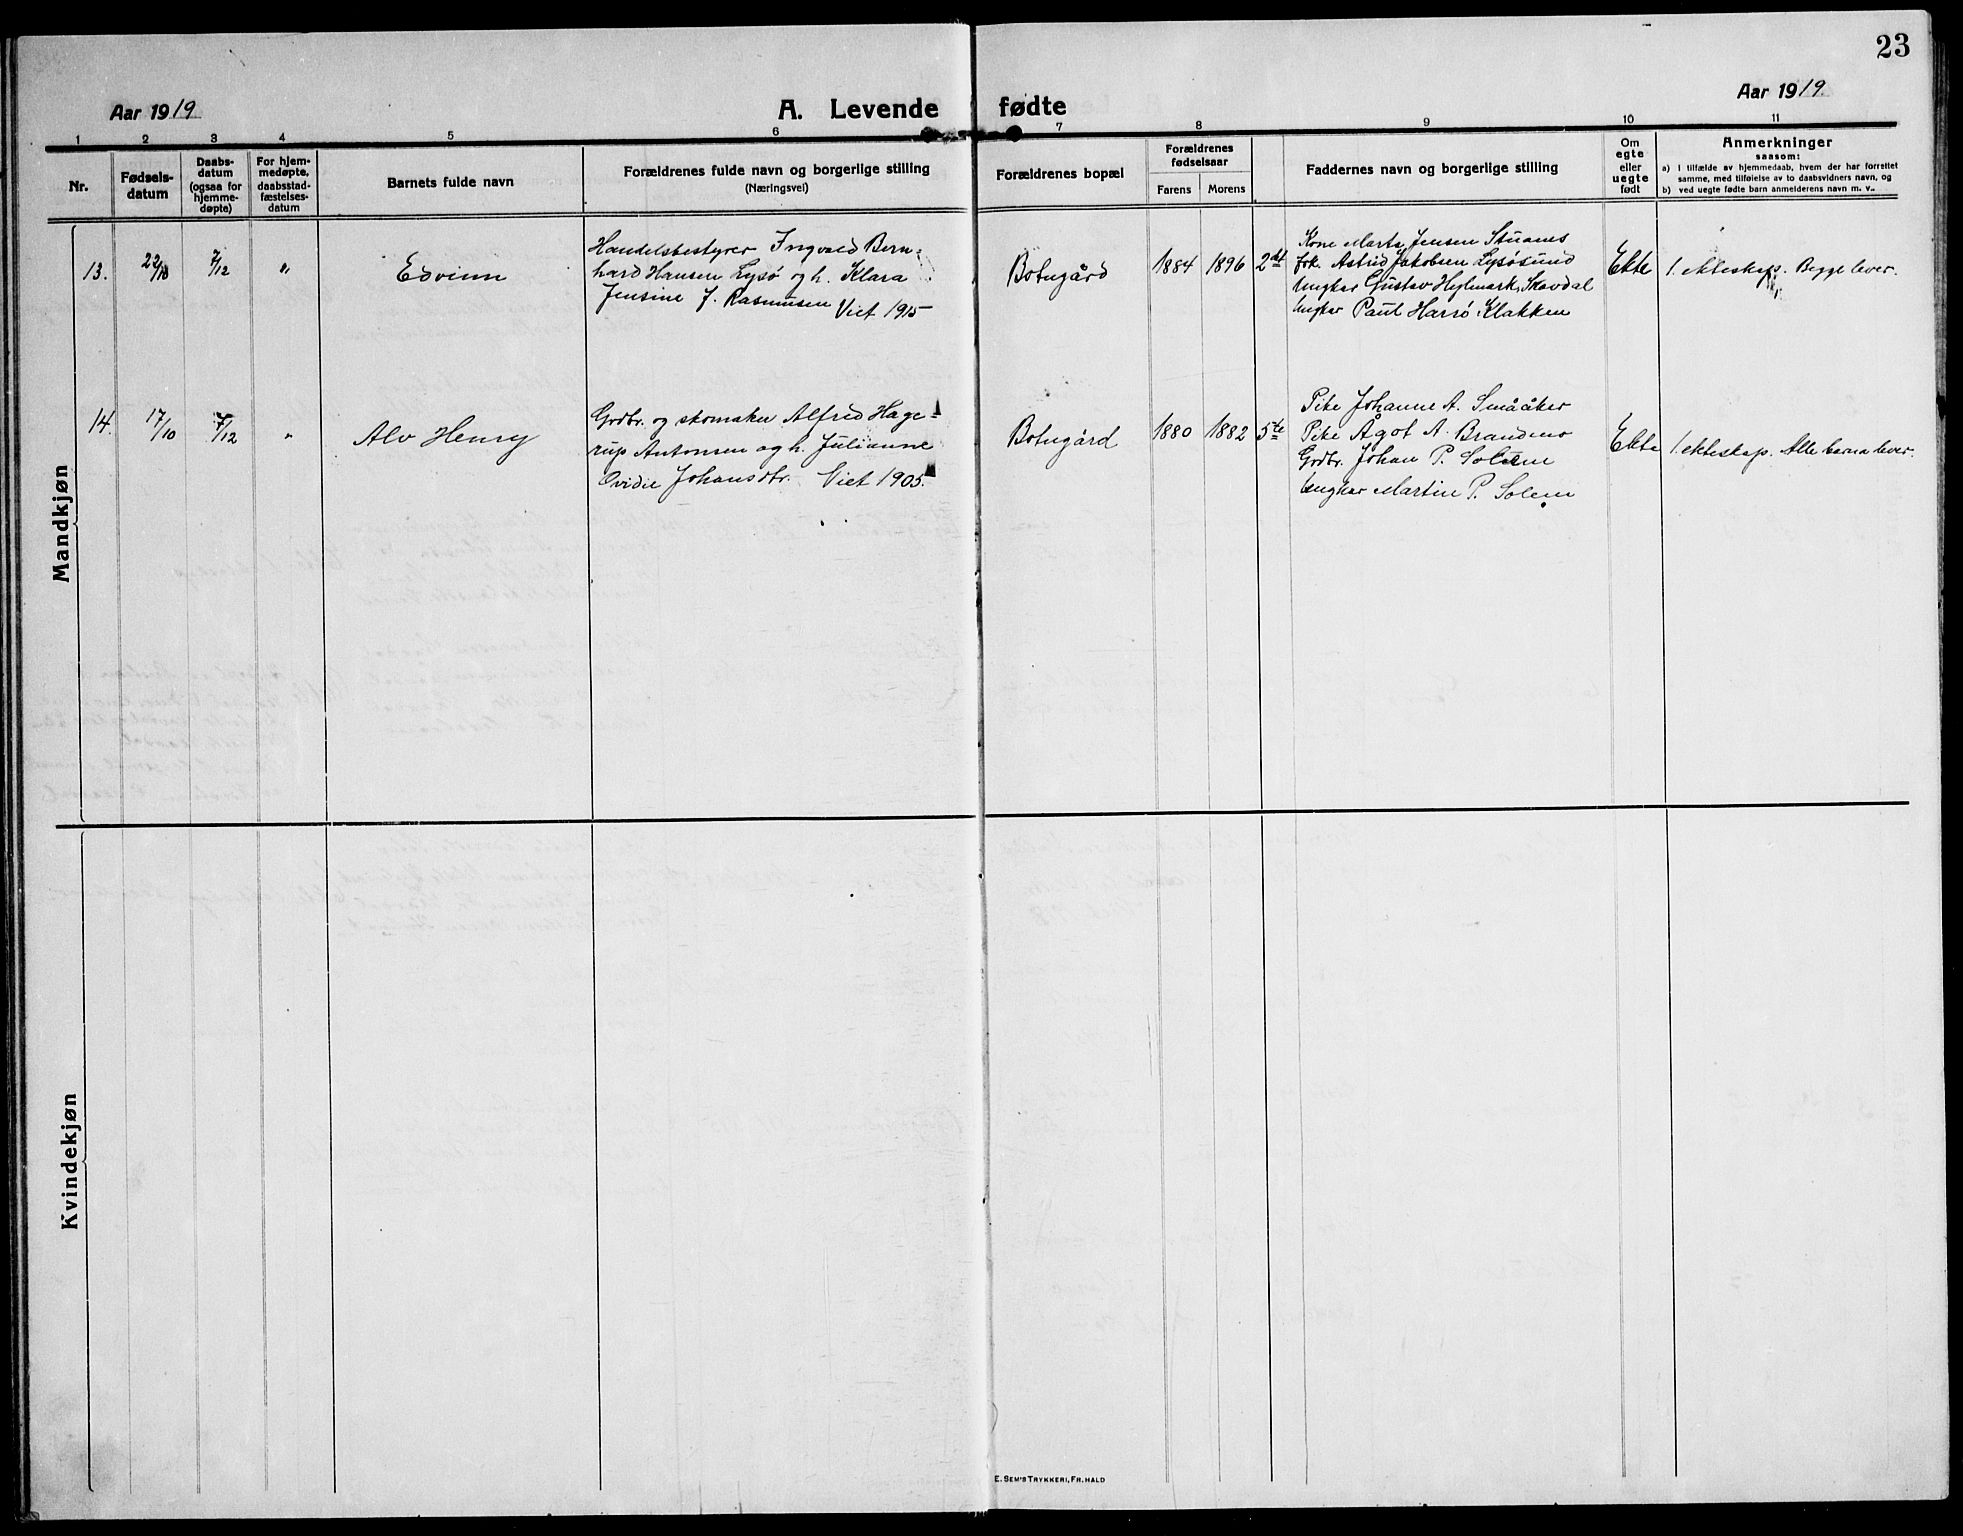 23
Aar 1919
A. Levende fødte
Aar 1919.
1 2 3 4 5 6 7 8 9 10 11
Nr.
Fødsels-
datum
Daabs-
datum
(ogsaa for
hjemme-
døpte)
For hjem-
medøpte,
daabsstad-
fæstelses-
datum
Barnets fulde navn
Forældrenes fulde navn og borgerlige stilling
(Næringsvei)
Forældrenes bopæl
Forældrenes
fødselsaar
Farens Morens
Faddernes navn og borgerlige stilling
Om
egte
eller
uegte
født
Anmerkninger
saasom:
a) I tilfælde av hjemmedaab, hvem der har forrettet
samme, med tilføielse av to daabsvidners navn, og
b) ved uegte fødte barn anmelderens navn m. v..
Mandkjøn
13.
22/10
7/12
"
Edvinn
Handelsbestyrer Ingvald Bern-
hard Hansen Lysø og h. Klara
Jensine J. Rasmusen Viet 1915
Botngård
1884
1896
2det
Kone Marta Jensen Stuanes
frk. Astrid Jakobsen Lysøsund
Ungkar Gustav Hylmark, Skavdal
Ungkar Paul Harsø, Klakken
Ekte
1. ekteskap. Begge lever.
14.
17/10
7/12
"
Alv Henry
Grdbr. og skomaker Alfred Hage-
rup Antonsen og h. Julianne
Ovidie Johansdtr. Viet 1905.
Botngård
1880
1882
5te
Pike Johanne A. Småäker
Pike Ågot A. Brandmo
Grdbr. Johan P. Solem
Ungkar Martin P. Solem
Ekte
1. ekteskap. Alle barna lever.
Kvindekjøn
E. SEM'S TRYKKERI, FR.HALD